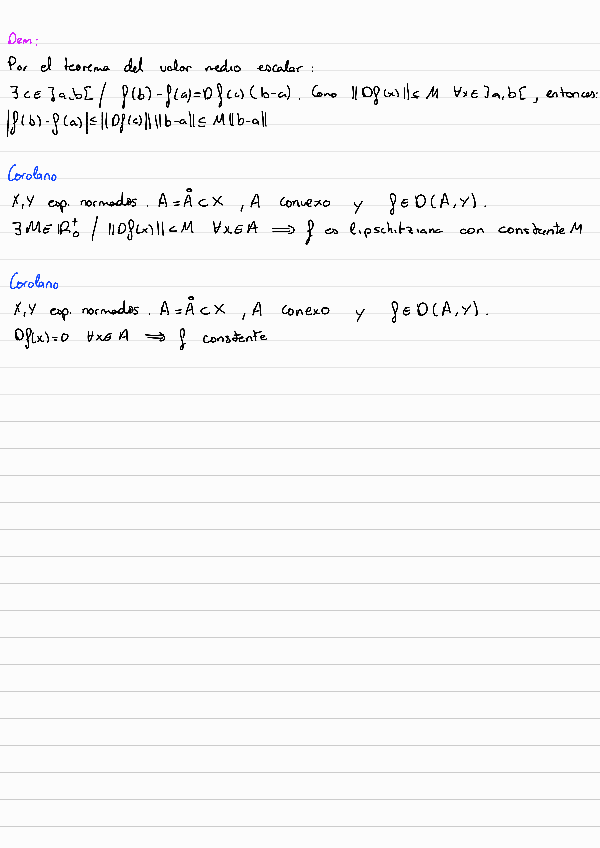 Dem:
Por el teorema del valor medio escalar:
∃ c ∈ ]a,b[ / f(b)-f(a)=Df(c)(b-a). Como ||Df(x)|| ≤ M ∀x∈]a,b[, entonces:
|f(b)-f(a)| ≤ ||Df(c)|| ||b-a|| ≤ M ||b-a||
Corolario
X,Y esp. normados. A=Å⊂X, A convexo y f∈D(A,Y).
∃ M∈ℝ₀⁺ / ||Df(x)|| ≤ M ∀x∈A ⟹ f es lipschitziana con constante M
Corolario
X,Y esp. normados. A=Å⊂X, A conexo y f∈D(A,Y).
Df(x)=0 ∀x∈A ⟹ f constante